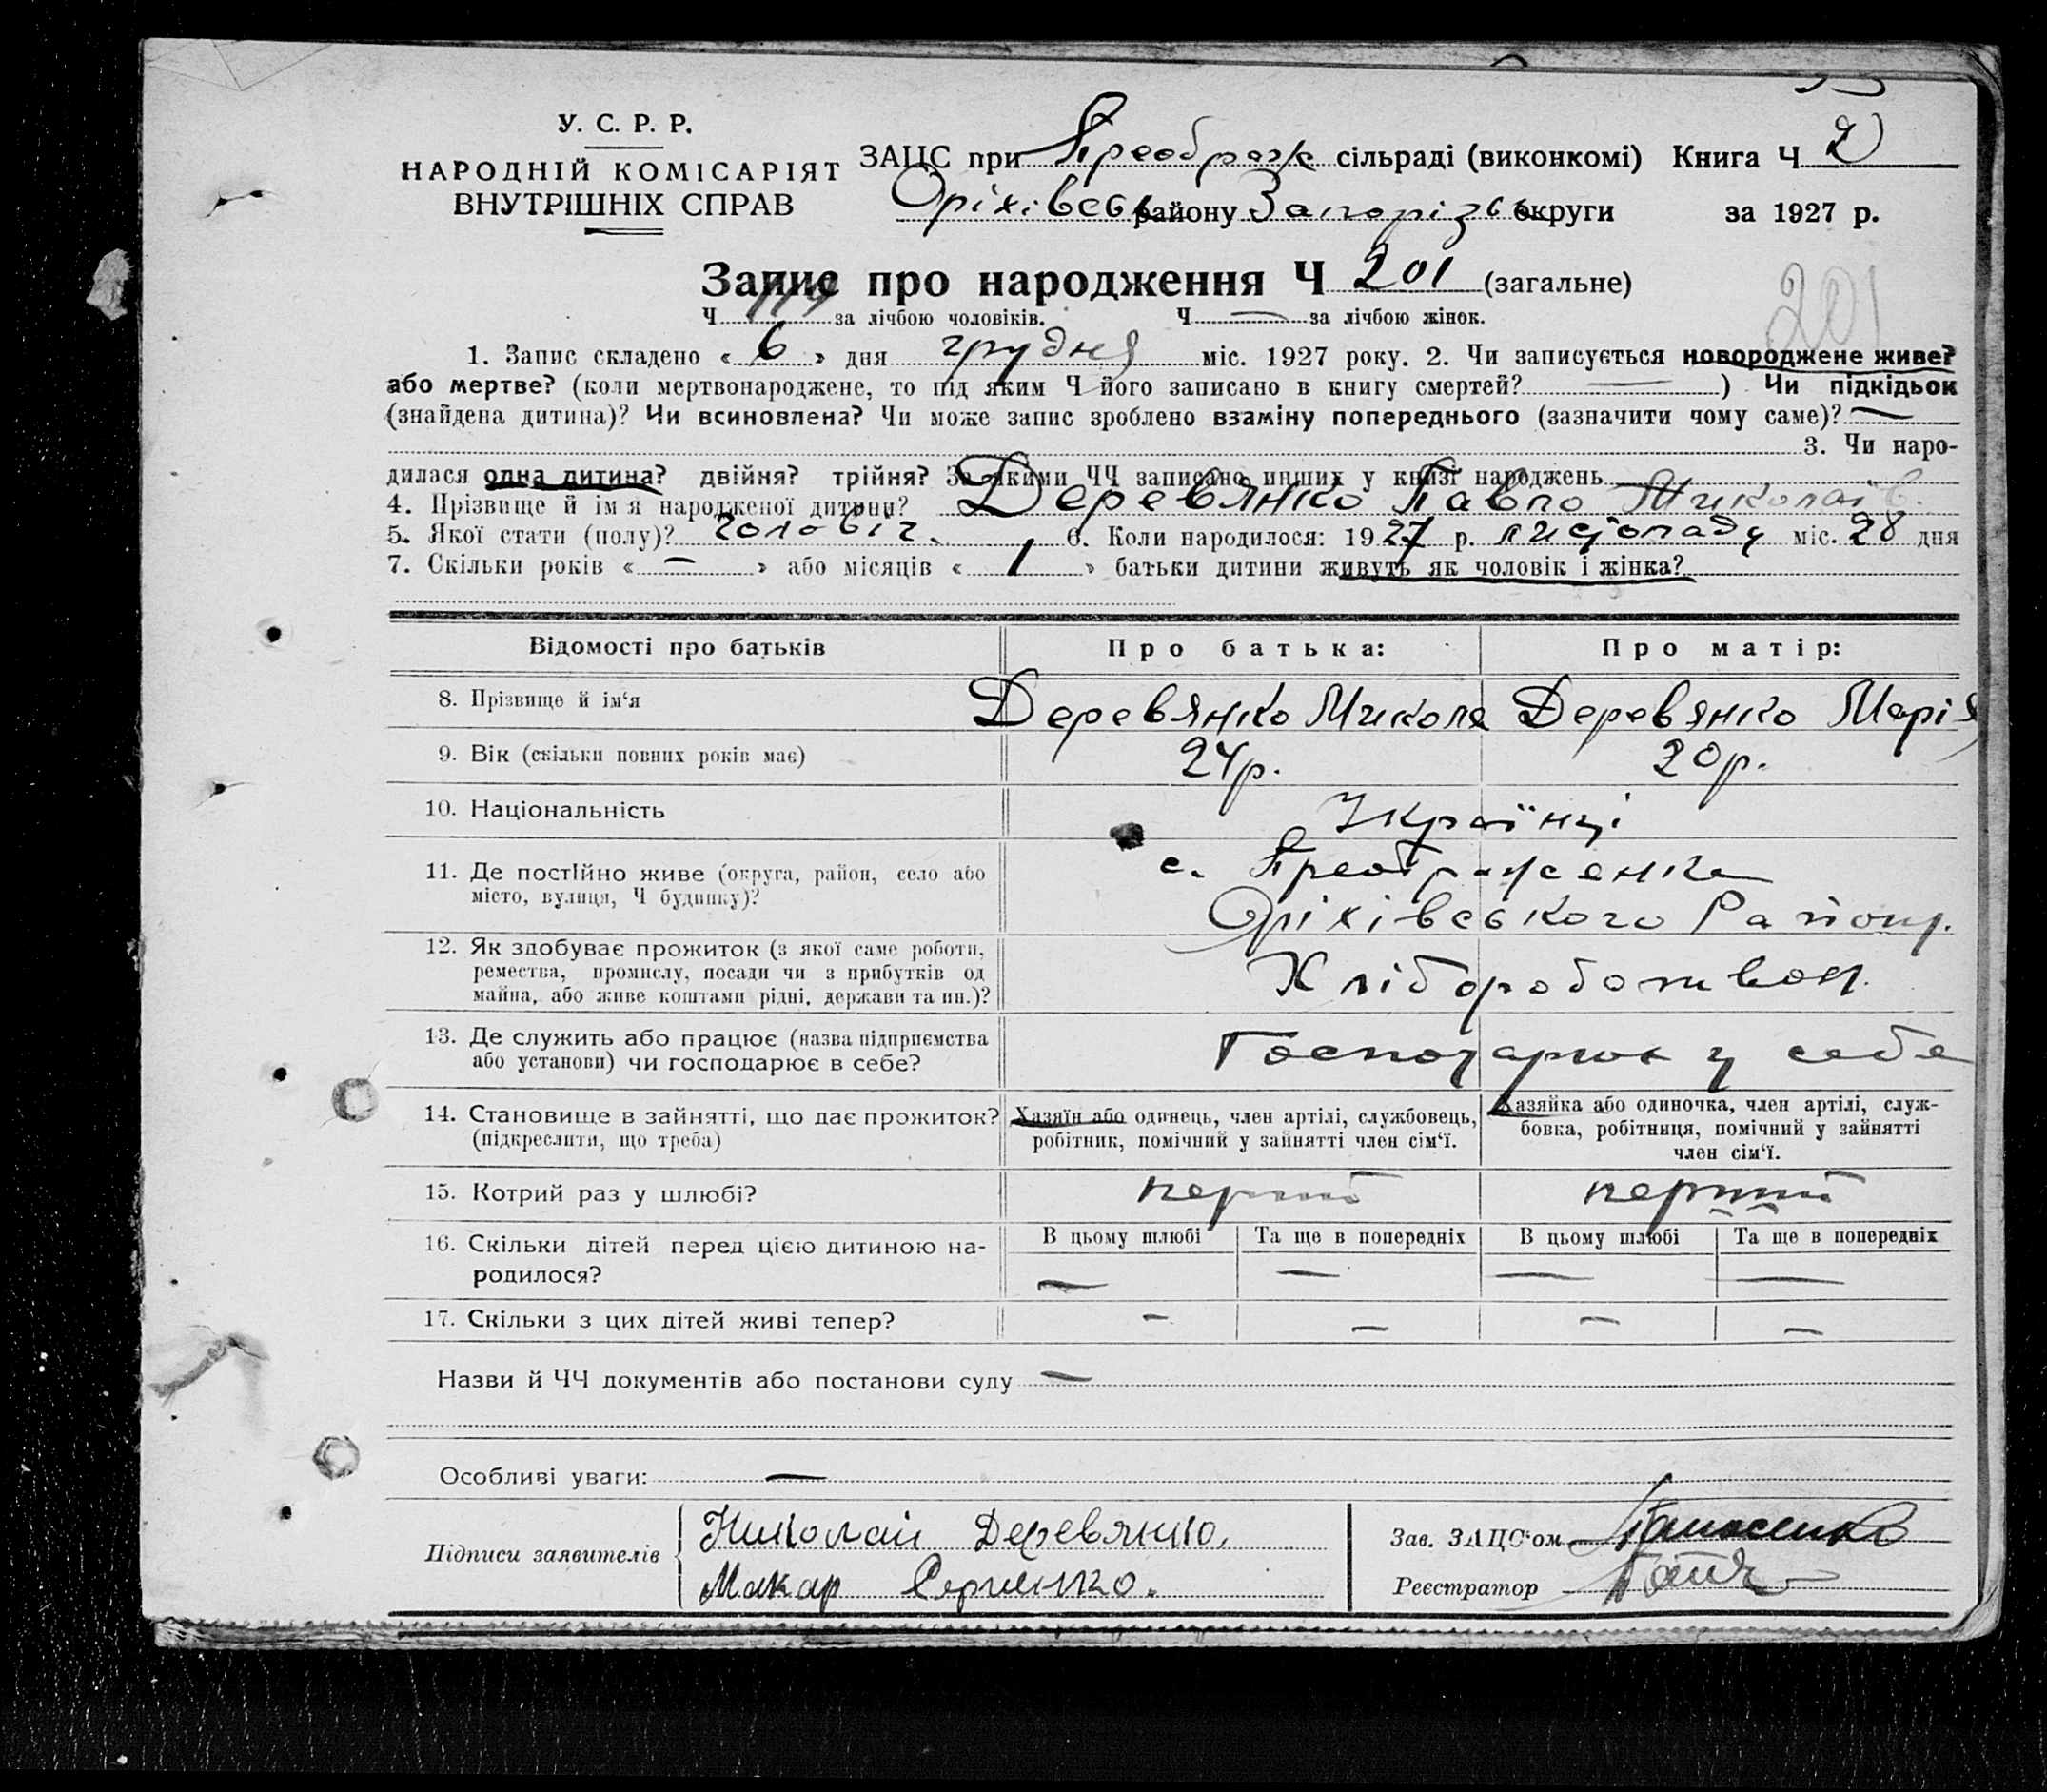 У. С. Р. Р.
НАРОДНІЙ КОМІСАРІЯТ
ВНУТРІШНІХ СПРАВ
ЗАЦС при Преображ сільраді (виконкомі) Книга Ч 2
Оріхівськ району Запорізьк округи за 1927 р.
Запис про народження Ч 201 (загальне)
201
Ч за лічбою чоловіків. Ч — за лічбою жінок.
1. Запис складено « 6 » дня грудня міс. 1927 року. 2. Чи записується новороджене живе?
або мертве? (коли мертвонароджене, то під яким Ч його записано в книгу смертей? — ) Чи підкідьок
(знайдена дитина)? Чи всиновлена? Чи може запис зроблено взаміну попереднього (зазначити чому саме)? —
3. Чи наро-
дилася одна дитина? двійня? трійня? За якими ЧЧ записано инших у книзі народжень
4. Прізвище й ім'я народженої дитини? Деревянко Павло Миколаїв.
5. Якої стати (полу)? чоловіч. 6. Коли народилося: 1927 р. листопаду міс. 28 дня
7. Скільки років « — » або місяців « 1 » батьки дитини живуть як чоловік і жінка?
Відомості про батьків Про батька: Про матір:
8. Прізвище й ім'я Деревянко Микола Деревянко Марія
9. Вік (скільки повних років має) 24р. 20р.
10. Національність Українці
11. Де постійно живе (округа, район, село або
місто, вулиця, Ч будинку)?
с. Преображенка
Оріхівського Району.
12. Як здобуває прожиток (з якої саме роботи,
ремества, промислу, посади чи з прибутків од
майна, або живе коштами рідні, держави та ин.)?
13. Де служить або працює (назва підприємства
або установи) чи господарює в себе?
у себе
14. Становище в зайнятті, що дає прожиток?
(підкреслити, що треба)
Хазяїн або одинець, член артілі, службовець,
робітник, помічний у зайнятті член сім'ї.
Хазяйка або одиночка, член артілі, служ-
бовка, робітниця, помічний у зайнятті
член сім'ї.
15. Котрий раз у шлюбі? перший перший
16. Скільки дітей перед цією дитиною на-
родилося?
В цьому шлюбі Та ще в попередніх В цьому шлюбі Та ще в попередніх
— — — —
17. Скільки з цих дітей живі тепер? — — — —
Назви й ЧЧ документів або постанови суду —
Особливі уваги: —
Підписи заявителів
Николай Деревянко.
Макар Сергиенко.
Зав. ЗАЦС'ом
Реєстратор